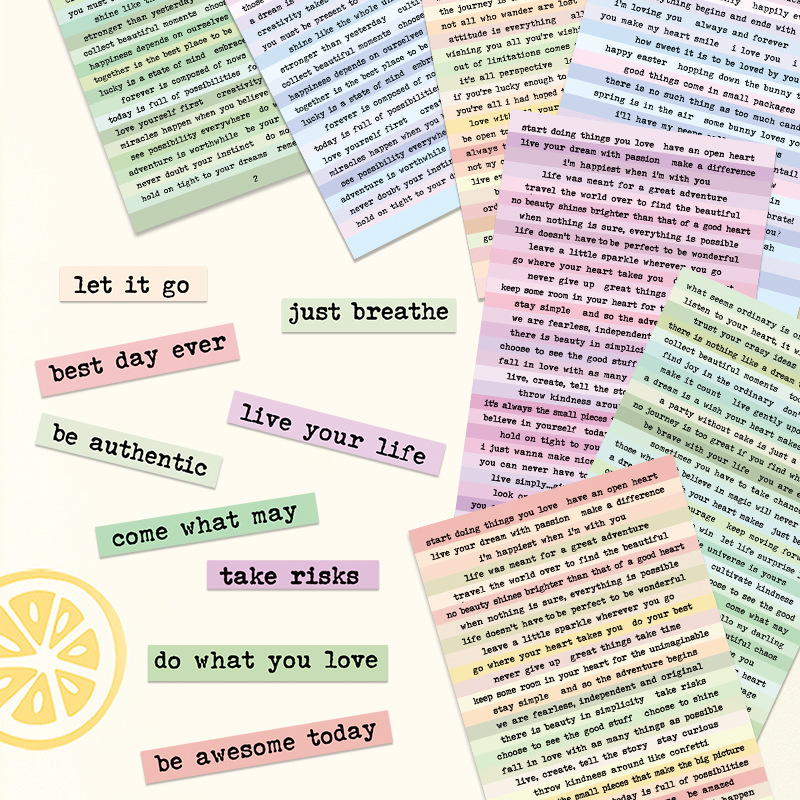 you must
shine like
stronger than yesterday
collect beautiful moments choos
happiness depends on ourselves
together is the best place to be
lucky is a state of mind embrac
forever is composed of nows
today is full of possibilities fo
love yourself first creativity
miracles happen when you believe
see possibility everywhere do w
adventure is worthwhile be your
never doubt your instinct do mo
hold on tight to your dreams reme
2
a dream is
creativity takes
you must be present to
shine like the whole un
stronger than yesterday cultiv
collect beautiful moments choose
happiness depends on ourselves
together is the best place to be
lucky is a state of mind embr
forever is composed of no
today is full of possibilities
love yourself first crea
miracles happen when you
see possibility everywhe
adventure is worthwhile
never doubt your instin
hold on tight to your d
the journey is
not all who wander are lost
attitude is everything
wishing you all you're wishi
out of limitations comes
it's all perspective
if you're lucky enough to
you're all i had hoped
love with all your
be open to
always
not my c
live ev
i'm loving you always and forever
you make my heart smile i love you i
how sweet it is to be loved by you
happy easter hopping down the bunny t
good things come in small packages
there is no such thing as too much cand
spring is in the air some bunny loves yo
i'll have my peeps
start doing things you love have an open heart
live your dream with passion make a difference
i'm happiest when i'm with you
life was meant for a great adventure
travel the world over to find the beautiful
no beauty shines brighter than that of a good heart
when nothing is sure, everything is possible
life doesn't have to be perfect to be wonderful
leave a little sparkle wherever you go
go where your heart takes you
never give up great things
keep some room in your heart for t
stay simple and so the adve
we are fearless, independent
there is beauty in simplici
choose to see the good stuff
fall in love with as many
live, create, tell the sto
throw kindness arou
it's always the small pieces
believe in yourself toda
hold on tight to you
i just wanna make nice
you can never have to
live simply...
look or
what seems ordinary is
listen to your heart, it w
trust your crazy ideas
there is nothing like a dream t
collect beautiful moments too
find joy in the ordinary don't
make it count live gently upo
a dream is a wish your heart makes
a party without cake is just a
no journey is too great if you find wh
be brave with your life you are e
sometimes you have to take chance
those who believe in magic will never
your heart makes just be
courage keep moving forw
win let life surprise
universe is yours
cultivate kindness
choose to see the good
come what may
hello my darling
beautiful chaos
let it go
just breathe
best day ever
live your life
be authentic
come what may
take risks
do what you love
be awesome today
start doing things you love have an open heart
live your dream with passion make a difference
i'm happiest when i'm with you
life was meant for a great adventure
travel the world over to find the beautiful
no beauty shines brighter than that of a good heart
when nothing is sure, everything is possible
life doesn't have to be perfect to be wonderful
leave a little sparkle wherever you go
go where your heart takes you do your best
never give up great things take time
keep some room in your heart for the unimaginable
stay simple and so the adventure begins
we are fearless, independent and original
there is beauty in simplicity take risks
choose to see the good stuff choose to shine
fall in love with as many things as possible
live, create, tell the story stay curious
throw kindness around like confetti
the small pieces that make the big picture
today is full of possibilities
be amazed
happen